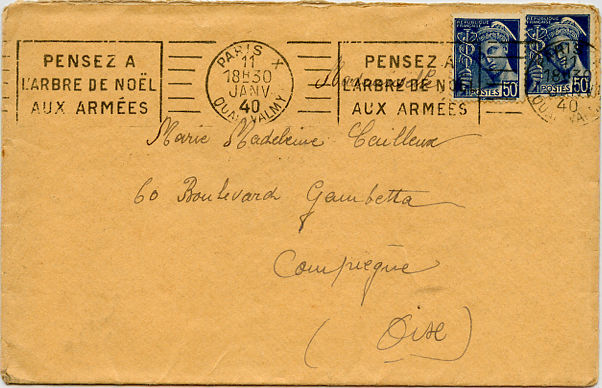 PENSEZ A
L'ARBRE DE NOËL
AUX ARMÉES
PARIS X
11
18H30
JANV
40
QUAI VALMY
PENSEZ A
L'ARBRE DE NOËL
AUX ARMÉES
REPUBLIQUE
FRANÇAISE
POSTES
50
REPUBLIQUE
FRANÇAISE
POSTES
50
18H30
40
Mademoiselle
Marie Madeleine Cailleux
60 Boulevard Gambetta
Compiègne
(Oise)